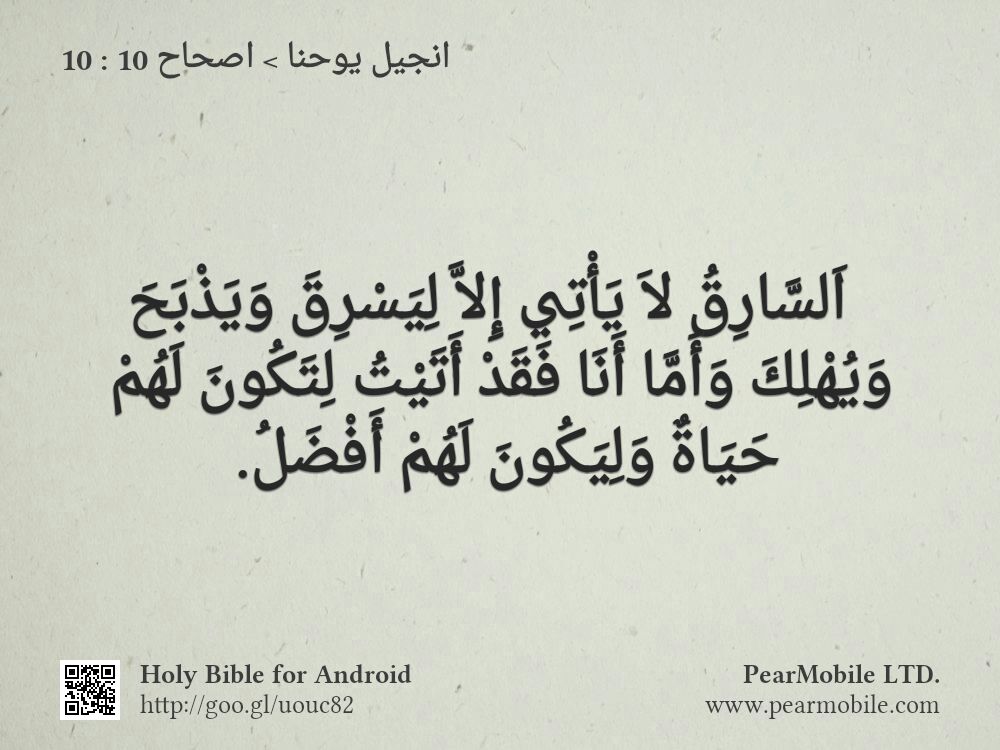 انجيل يوحنا > اصحاح 10 : 10
اَلسَّارِقُ لاَ يَأْتِي إِلاَّ لِيَسْرِقَ وَيَذْبَحَ
وَيُهْلِكَ وَأَمَّا أَنَا فَقَدْ أَتَيْتُ لِتَكُونَ لَهُمْ
حَيَاةٌ وَلِيَكُونَ لَهُمْ أَفْضَلُ.
Holy Bible for Android
http://goo.gl/uouc82
PearMobile LTD.
www.pearmobile.com